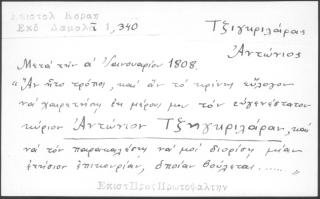 Ἐπιστολ Κοραη
Ἐκδ Δαμαλᾶ 1,340
Τζιγκριλάρας
Ἀντώνιος
Μετὰ τὴν α΄ Ἰανουαρίου 1808.
"Ἂν ἦτο τρόπος, καὶ ἂν τὸ κρίνῃς εὔλογον
νὰ χαιρετήσῃς ἐκ μέρους μου τὸν εὐγενέστατον
κύριον Ἀντώνιον Τζηγκριλάραν, καὶ
νὰ τὸν παρακαλέσῃς νὰ μοὶ διορίσῃ μίαν
ἐτήσιον ἐπικουρίαν, ὁποίαν βούλεται......"
Ἐπιστ Πρὸς Πρωτοψάλτην